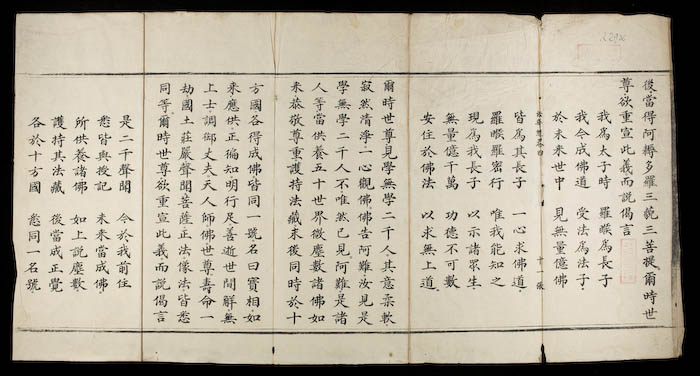 後當得阿耨多羅三藐三菩提爾時世
尊欲重宣此義而說偈言
我為太子時 羅睺為長子
我今成佛道 受法為法子
於未來世中 見無量億佛
十一張
皆為其長子 一心求佛道
羅睺羅密行 唯我能知之
現為我長子 以示諸眾生
無量億千萬 功德不可數
安住於佛法 以求無上道
爾時世尊見學無學二千人其意柔軟
寂然清淨一心觀佛佛告阿難汝見是
學無學二千人不唯然已見阿難是諸
人等當供養五十世界微塵數諸佛如
來恭敬尊重護持法藏末後同時於十
方國各得成佛皆同一號名曰寶相如
來應供正徧知明行足善逝世間解無
上士調御丈夫天人師佛世尊壽命一
劫國土莊嚴聲聞菩薩正法像法皆悉
同等爾時世尊欲重宣此義而說偈言
是二千聲聞 今於我前住
悉皆與授記 未來當成佛
所供養諸佛 如上說塵數
護持其法藏 後當成正覺
各於十方國 悉同一名號